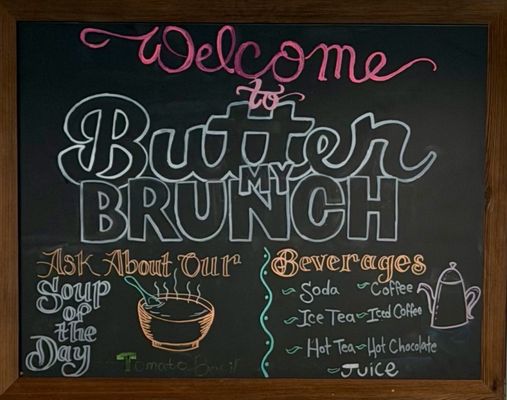 Welcome
to
Butter
MY
BRUNCH
Ask About Our
Soup
of the
Day
Tomato Basil
Beverages
Soda Coffee
Ice Tea Iced Coffee
Hot Tea Hot Chocolate
Juice